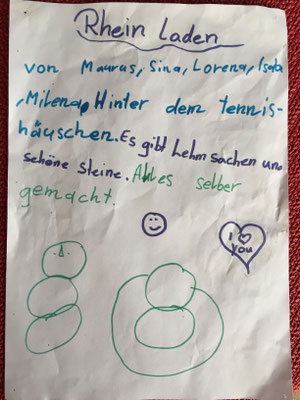 Rhein Laden
von Maurus, Sina, Lorena, Isata
, Milena, Hinter dem tennis-
häuschen. Es gibt Lehm sachen und
schöne steine. Alles selber
gemacht.
I ♡
you